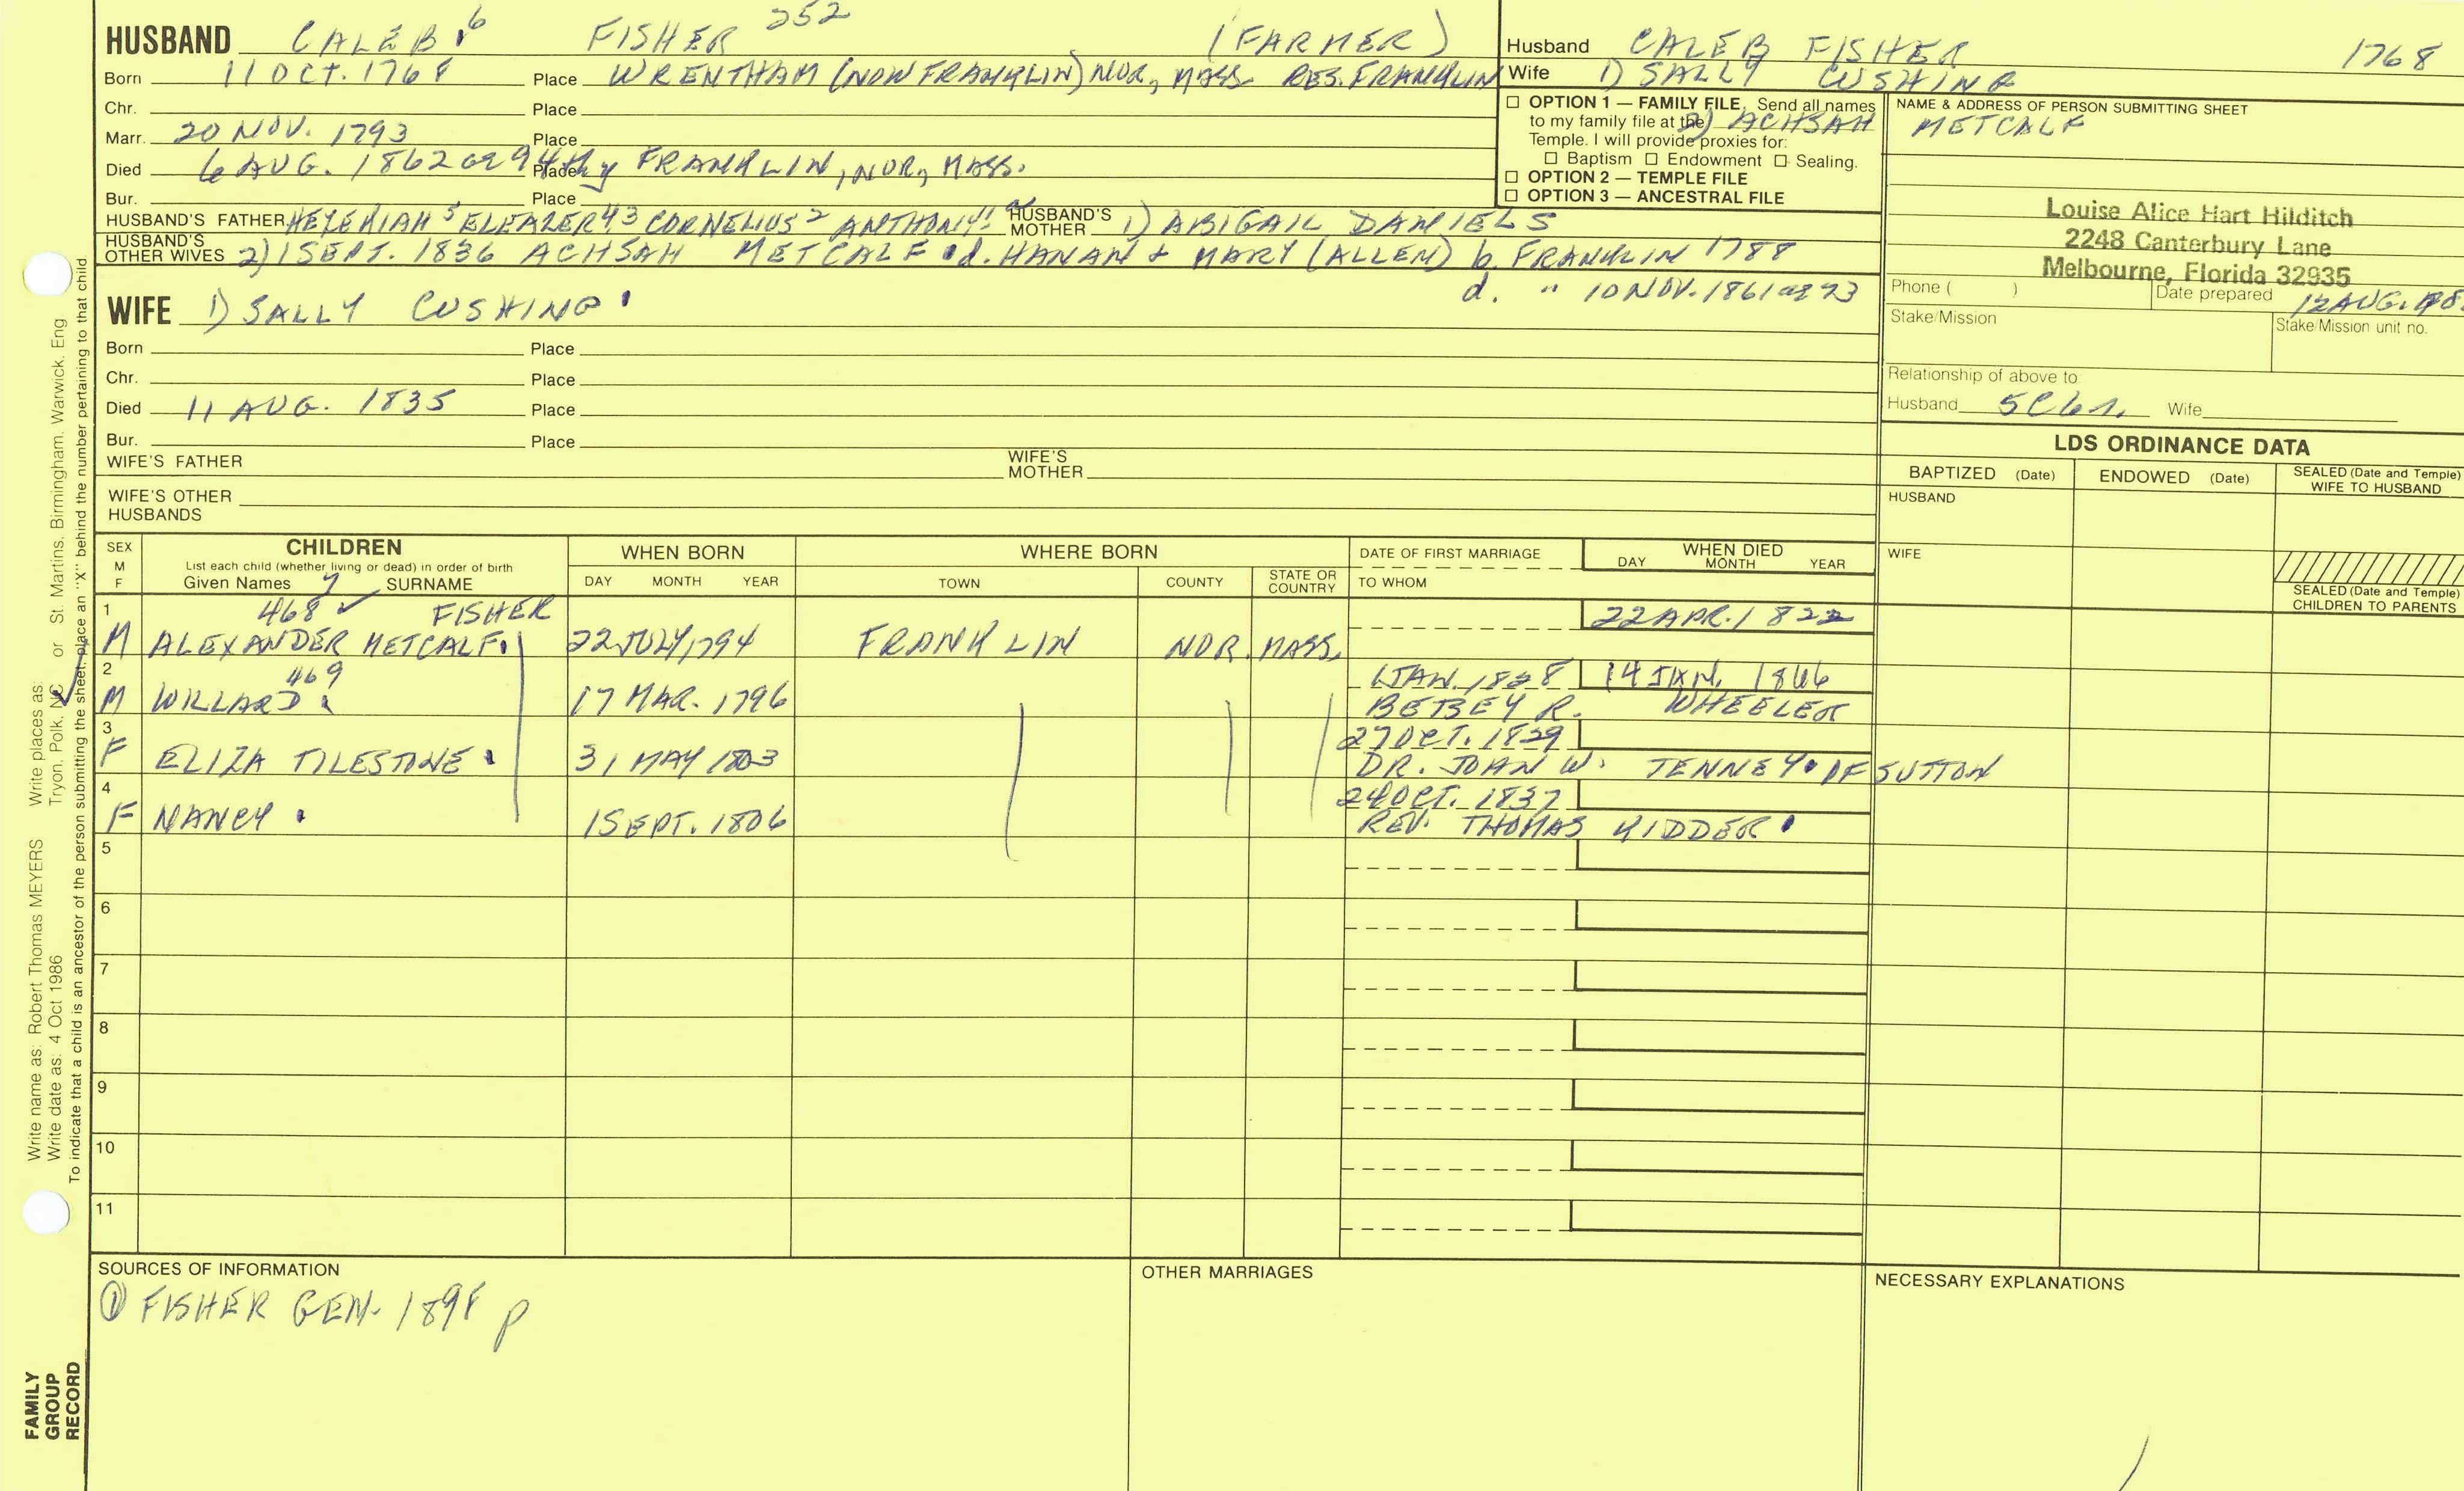 HUSBAND CALEB 6 FISHER 252 (FARMER)
Born 11 OCT. 1768 Place WRENTHAM (NOW FRANKLIN) NOR, MASS RES. FRANKLIN
Chr. Place
Marr. 20 NOV. 1793 Place
Died 6 AUG. 1862 Place FRANKLIN, NOR, MASS.
Bur. Place
HUSBAND'S FATHER HEZEKIAH 5 ELEAZER 43 CORNELIUS 2 ANTHONY 1 HUSBAND'S MOTHER 1) ABIGAIL DANIELS
HUSBAND'S OTHER WIVES 2) 1 SEPT. 1836 ACHSAH METCALF d. HANAN & MARY (ALLEN) b. FRANKLIN 1788
d. " 10 NOV. 1861
WIFE 1) SALLY CUSHING
Born Place
Chr. Place
Died 11 AUG. 1835 Place
Bur. Place
WIFE'S FATHER WIFE'S MOTHER
WIFE'S OTHER HUSBANDS
Husband CALEB FISHER 1768
Wife 1) SALLY CUSHING
2) ACHSAH METCALF
☐ OPTION 1 — FAMILY FILE. Send all names
to my family file at the
Temple. I will provide proxies for:
☐ Baptism ☐ Endowment ☐ Sealing.
☐ OPTION 2 — TEMPLE FILE
☐ OPTION 3 — ANCESTRAL FILE
NAME & ADDRESS OF PERSON SUBMITTING SHEET
Louise Alice Hart Hilditch
2248 Canterbury Lane
Melbourne, Florida 32935
Phone ( ) Date prepared 12 AUG.
Stake/Mission Stake/Mission unit no.
Relationship of above to
Husband 5C6r. Wife
LDS ORDINANCE DATA
BAPTIZED (Date) ENDOWED (Date) SEALED (Date and Temple) WIFE TO HUSBAND
HUSBAND
WIFE
SEALED (Date and Temple) CHILDREN TO PARENTS
SEX M F
CHILDREN
List each child (whether living or dead) in order of birth
Given Names 7 SURNAME
WHEN BORN DAY MONTH YEAR
WHERE BORN TOWN COUNTY STATE OR COUNTRY
DATE OF FIRST MARRIAGE TO WHOM
WHEN DIED DAY MONTH YEAR
1 468 ✓ FISHER 22 APR. 1822
M ALEXANDER METCALF 22 JULY 1794 FRANKLIN NOR. MASS.
2 469 JAN. 1828 14 JAN. 1866
M WILLARD 17 MAR. 1796 BETSEY R. WHEELER
3 27 OCT. 1829
F ELIZA TILESTONE 31 MAY 1803 DR. JOHN W. TENNEY OF SUTTON
4 24 OCT. 1837
F NANCY 1 SEPT. 1806 REV. THOMAS KIDDER
5
6
7
8
9
10
11
SOURCES OF INFORMATION
① FISHER GEN. 1898 p
OTHER MARRIAGES
NECESSARY EXPLANATIONS
Write name as: Robert Thomas MEYERS Write places as: Tryon, Polk, NC or St. Martins, Birmingham, Warwick, Eng
Write date as: 4 Oct 1986
To indicate that a child is an ancestor of the person submitting the sheet, place an "X" behind the number pertaining to that child
FAMILY
GROUP
RECORD